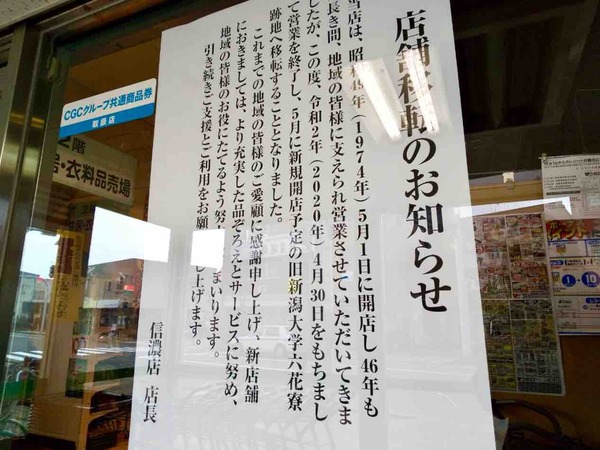 店舗移転のお知らせ
当店は、昭和49年(1974年)5月1日に開店し46年も
長き間、地域の皆様に支えられ営業させていただいてきま
したが、この度、令和2年(2020年)4月30日をもちまし
て営業を終了し、5月に新規開店予定の旧新潟大学六花寮
跡地へ移転することとなりました。
これまでの地域の皆様のご愛顧に感謝申し上げ、新店舗
におきましては、より充実した品ぞろえとサービスに努め、
地域の皆様のお役にたてるよう努 まいります。
引き続きご支援とご利用をお願 し上げます。
信濃店 店長
CGCグループ共通商品券
取扱店
2階
・衣料品売場